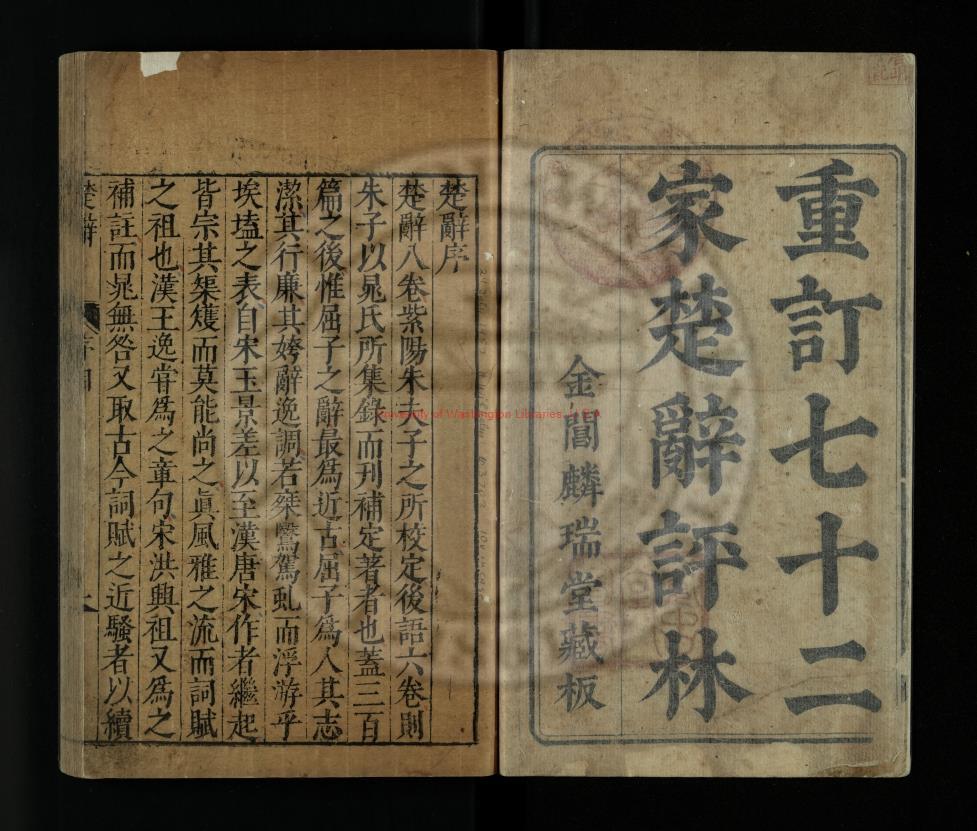 重訂七十二
家楚辭評林
金閶麟瑞堂藏板
楚辭序
楚辭八卷紫陽朱夫子之所校定後語六卷則
朱子以晁氏所集錄而刊補定著者也蓋三百
篇之後惟屈子之辭最爲近古屈子爲人其志
潔其行廉其姱辭逸調若椉鷖駕虬而浮游乎
埃壒之表自宋玉景差以至漢唐宋作者繼起
皆宗其榘矱而莫能尚之眞風雅之流而詞賦
之祖也漢王逸甞爲之章句宋洪興祖又爲之
補註而晁無咎又取古今詞賦之近騷者以續
楚辭
University of Washington Libraries, U.S.A.